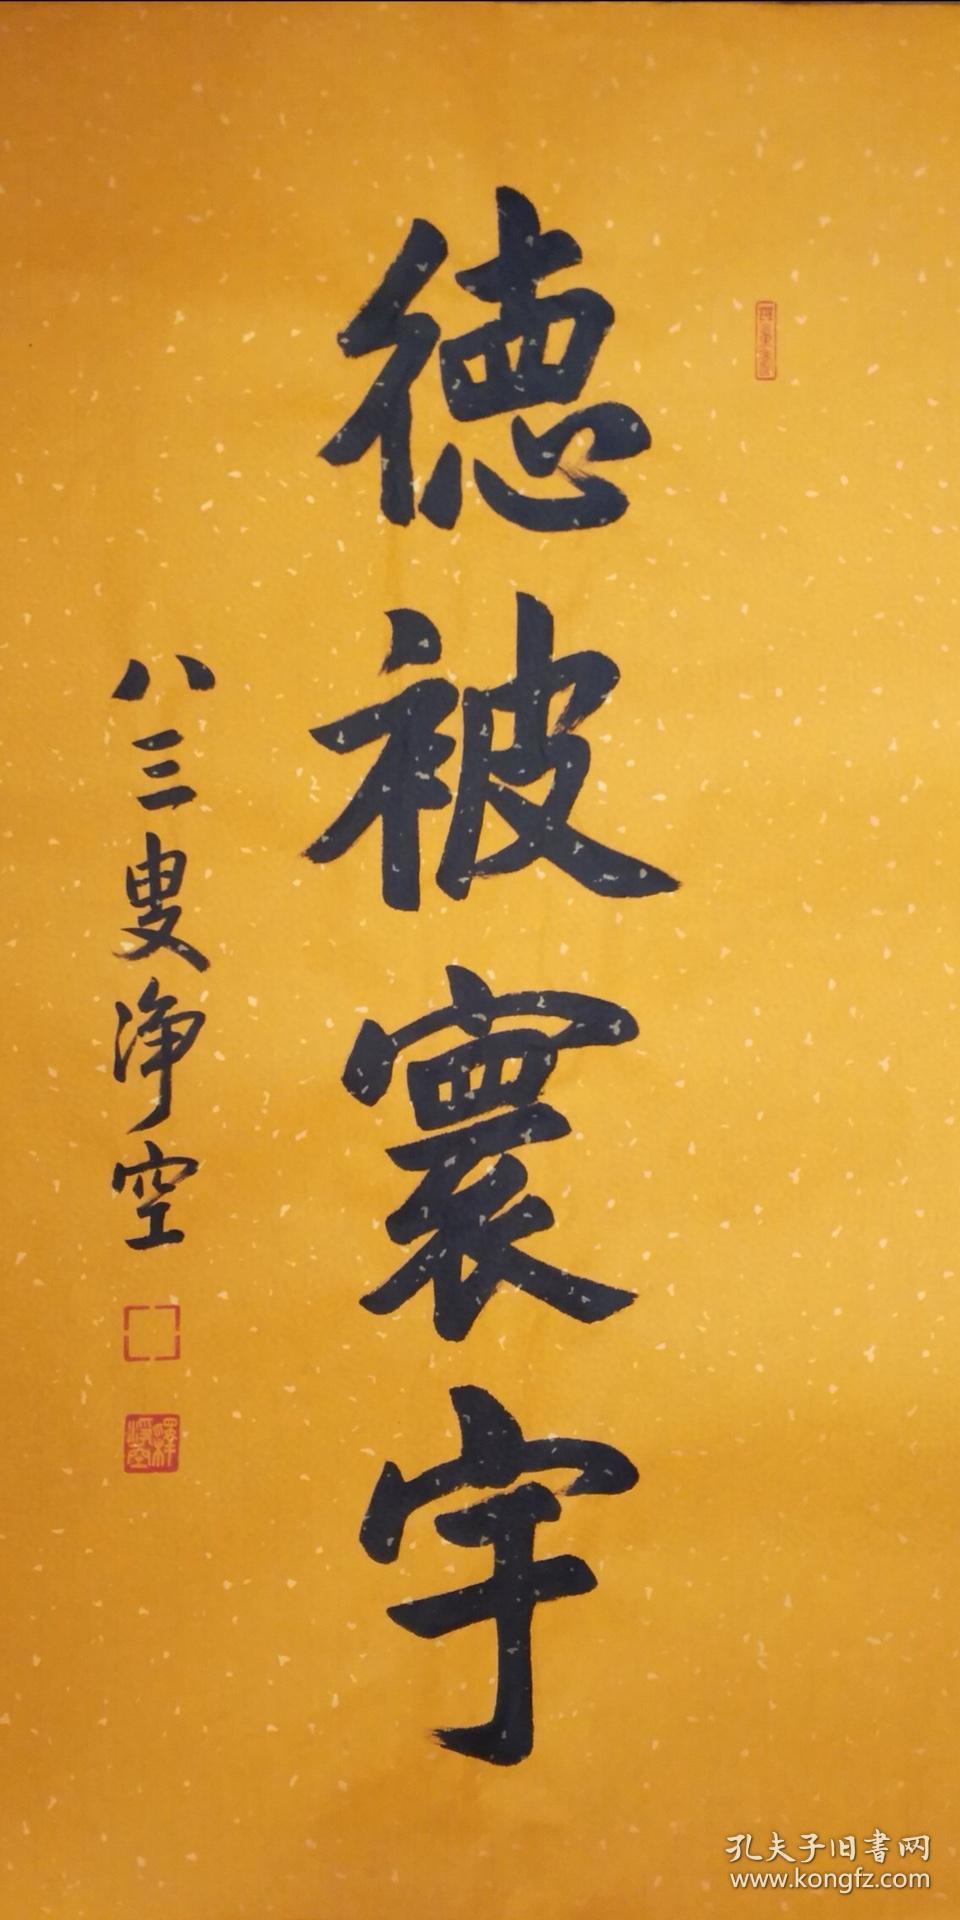 德被寰宇
八三叟净空
釋淨空
孔夫子旧书网
www.kongfz.com